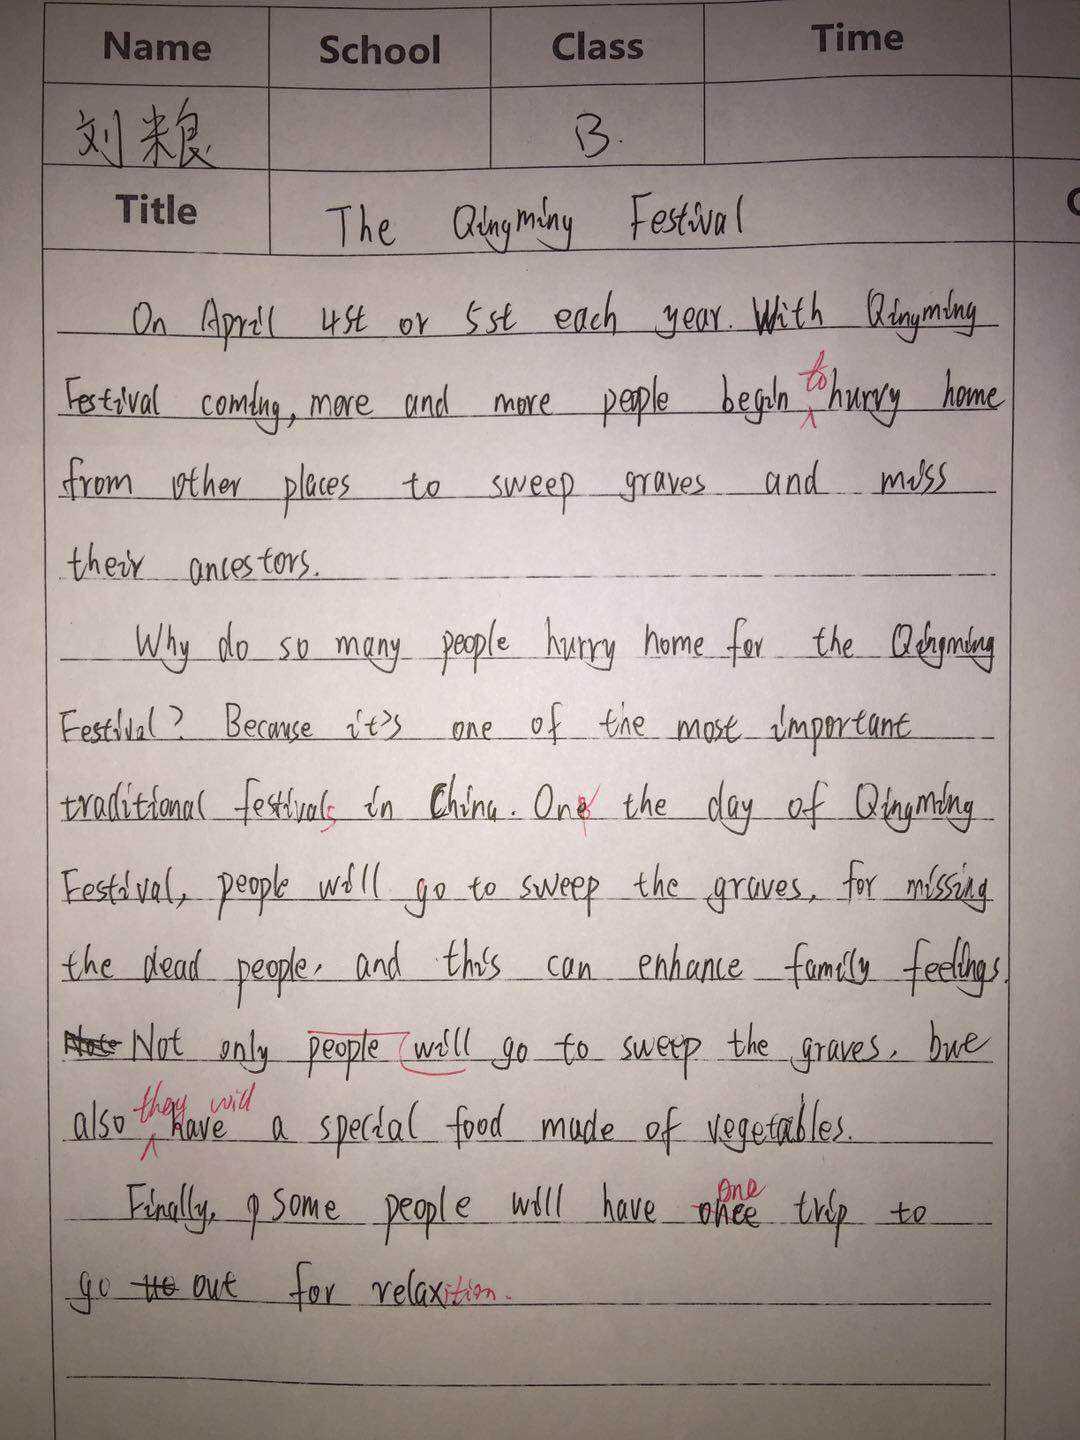 Name School Class Time
刘粮 B.
Title The Qingming Festival
On April 4st or 5st each year. With Qingming
to
Festival coming, more and more people begin hurry home
from other places to sweep graves and miss
their ancestors.
Why do so many people hurry home for the Qingming
Festival? Because it's one of the most important
traditional festivals in China. One the day of Qingming
Festival, people will go to sweep the graves, for missing
the dead people, and this can enhance family feelings.
Note Not only people will go to sweep the graves, but
they will
also have a special food made of vegetables.
one
Finally, some people will have once trip to
go out for relaxition.